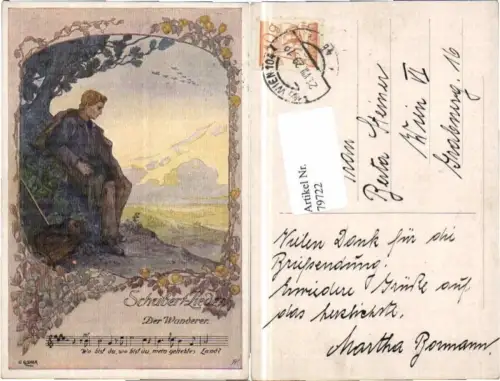 Schubert-Lieder
Der Wanderer.
Wo bist du, wo bist du, mein geliebtes Land?
WIEN 104
Artikel Nr.
79722
Berta Steiner
Wien VI
Grabnerg. 16
Vielen Dank für die
Briefsendung!
Erwiedere Grüße auf
das herzlichste.
Martha Bormann